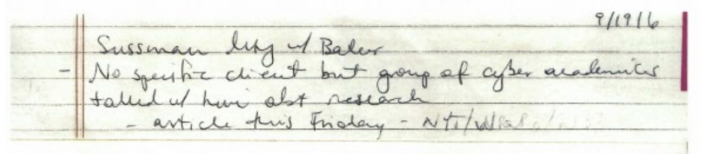 9/19/16
Sussman Mtg w/ Baker
- No specific client but group of cyber academics
talked w/ him abt research
- article this Friday - NYT/WaPo/WSJ